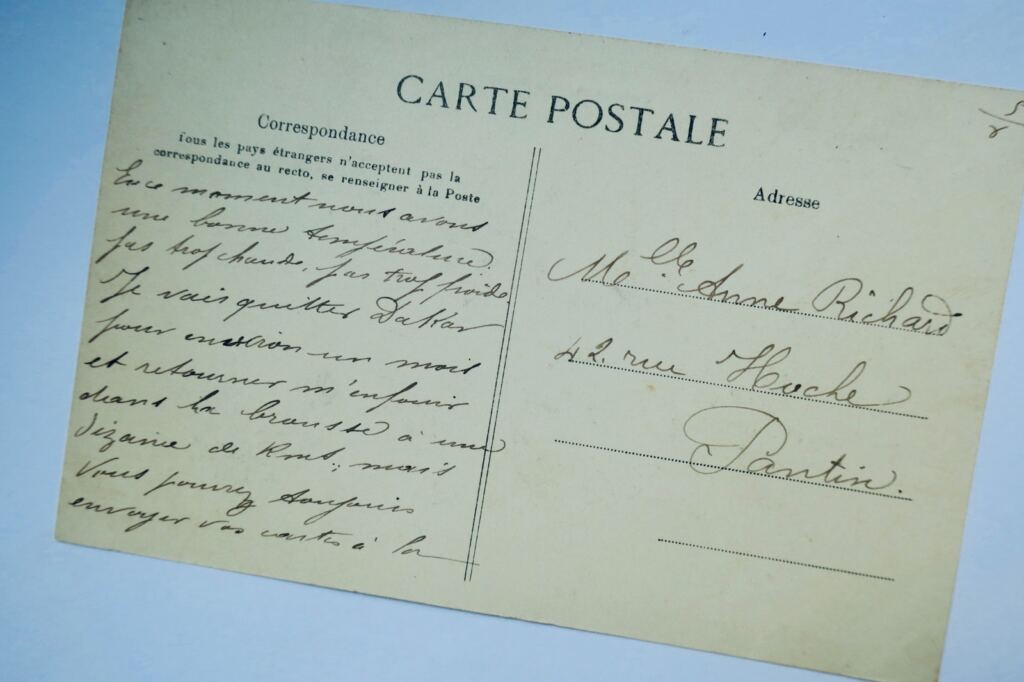 CARTE POSTALE
Correspondance
Tous les pays étrangers n'acceptent pas la
correspondance au recto, se renseigner à la Poste
En ce moment nous avons
une bonne température.
pas trop chaude, pas trop froide
Je vais quitter Dakar
pour environ un mois
et retourner m'enfouir
dans la brousse à une
dizaine de Kmt; mais
Vous pourrez toujours
envoyer vos cartes à la
Adresse
Melle Anne Richard
42. rue Hoche
Pantin.